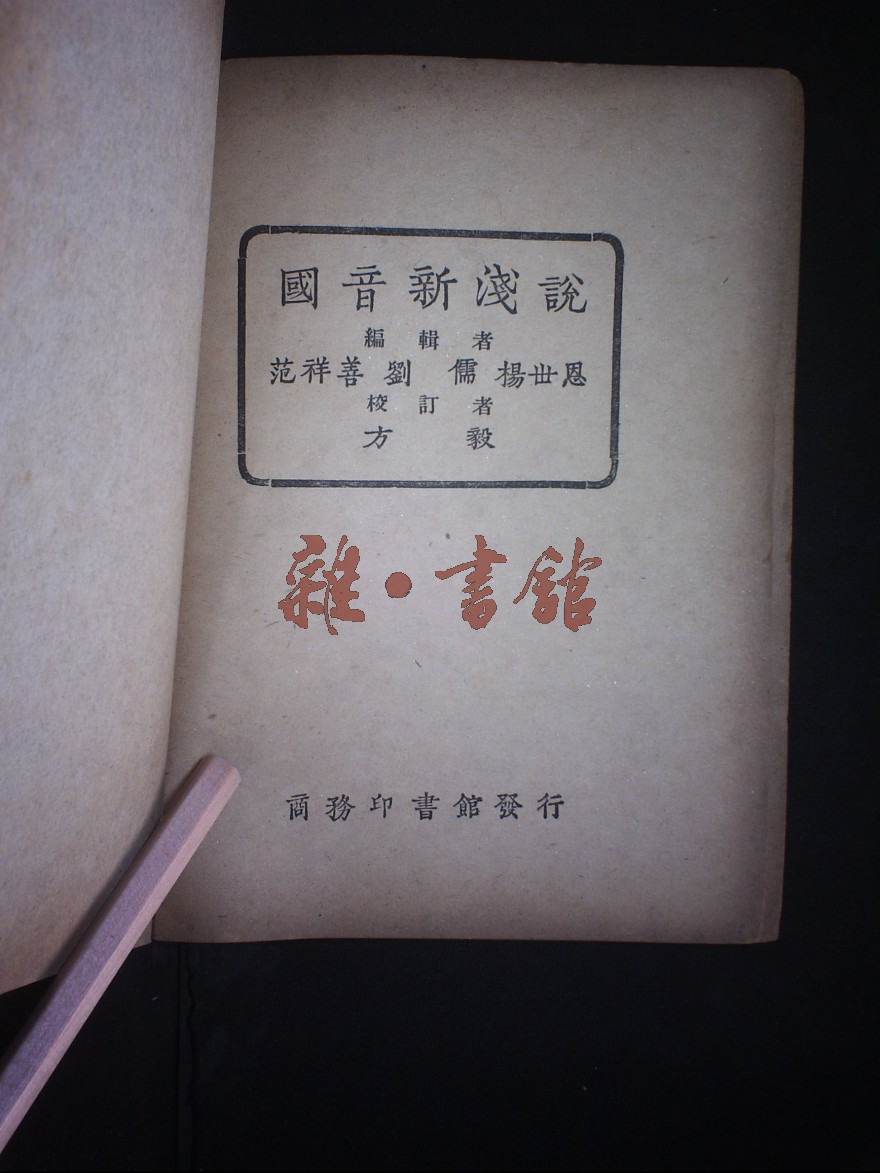 國音新淺說
編輯者
范祥善 劉儒 楊世恩
校訂者
方毅
雜·書館
商務印書館發行